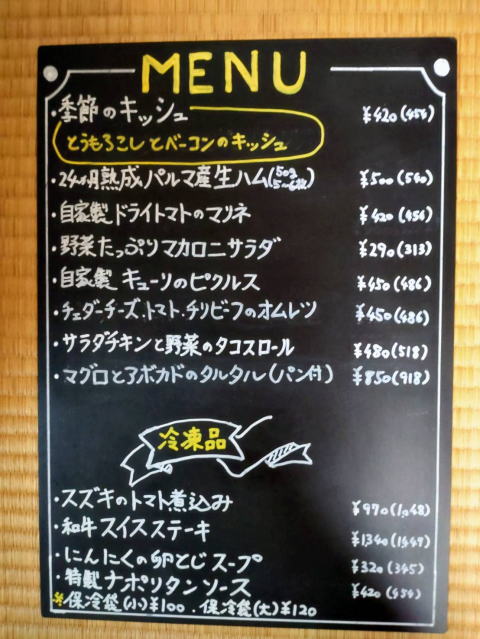 MENU
・季節のキッシュ ¥420(454)
とうもろこしとベーコンのキッシュ
・24ヶ月熟成パルマ産生ハム(50g 5~6枚) ¥500(540)
・自家製ドライトマトのマリネ ¥420(454)
・野菜たっぷりマカロニサラダ ¥290(313)
・自家製 キューリのピクルス ¥450(486)
・チェダーチーズ.トマト.チリビーフのオムレツ ¥450(486)
・サラダチキンと野菜のタコスロール ¥480(518)
・マグロとアボカドのタルタル(パン付) ¥850(918)
冷凍品
・スズキのトマト煮込み ¥970(1,048)
・和牛スイスステーキ ¥1340(1447)
・にんにくの卵とじスープ ¥320(345)
・特製ナポリタンソース ¥420(454)
※保冷袋(小)¥100 . 保冷袋(大)¥120